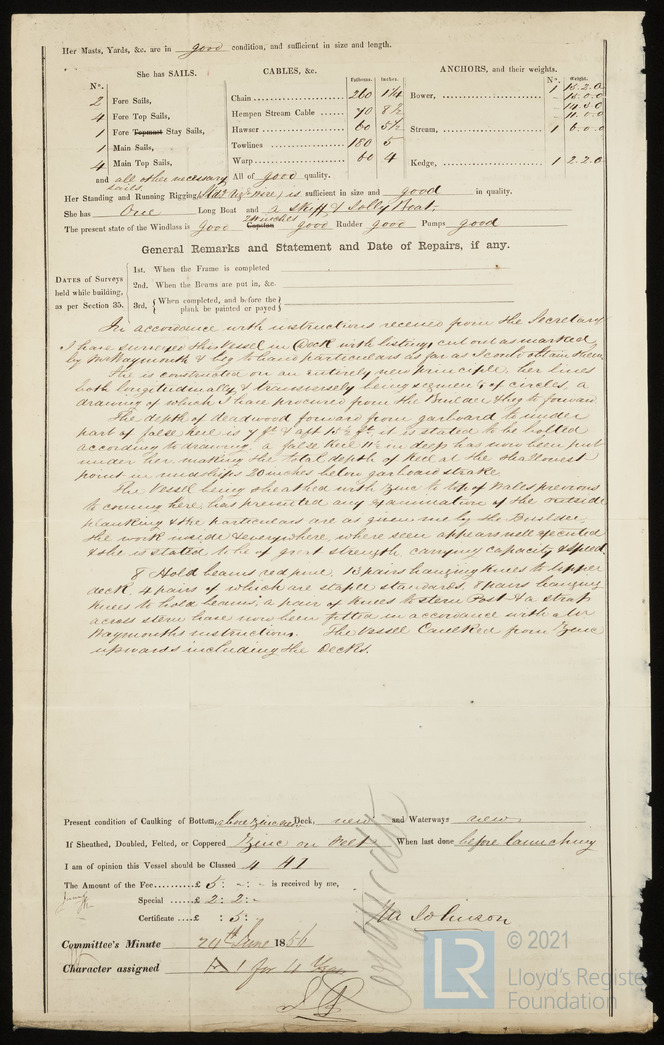 Her Masts, Yards, &c. are in good condition, and sufficient in size and length.
She has SAILS.
CABLES, &c.
ANCHORS, and their weights.
No.
Fathoms. Inches.
No. Weight.
2 Fore Sails,
4 Fore Top Sails,
1 Fore Topmast Stay Sails,
1 Main Sails,
4 Main Top Sails,
and all other necessary sails.
Chain 260
Hempen Stream Cable 70 8½
Hawser 60 5½
Towlines 180 5
Warp 60 4
All of good quality.
Bower, 1 15.2.0
15.0.0
Stream, 1 6.0.0
Kedge, 1 2.2.0
Her Standing and Running Rigging wire) is sufficient in size and good in quality.
She has One Long Boat and a Skiff & Jolly Boat
The present state of the Windlass is good Capstan good Rudder good Pumps good
General Remarks and Statement and Date of Repairs, if any.
DATES of Surveys held while building, as per Section 35.
1st. When the Frame is completed
2nd. When the Beams are put in, &c.
3rd. {When completed, and before the plank be painted or payed}
In accordance with instructions received from the Secretary
I have surveyed this Vessel in Dock with listings cut out as marked
by Mr Waymouth & beg to hand particulars as far as I could obtain them.
She is constructed on an entirely new principle, her lines
both longitudinally & transversely being segments of circles, a
drawing of which I have procured from the Builder & beg to forward
The depth of deadwood forward from garboard to under
part of false keel is 7 ft & aft ft it is stated to be bolted
according to drawing, a false keel 11½ in deep has now been put
under her, making the total depth of keel at the shallowest
point in midships 20 inches below garboard strake
The Vessel being sheathed with Zinc to top of Wales previous
to coming here has prevented any examination of the outside
planking & the particulars are as given me by the Builder,
the work inside & everywhere where seen appears well executed
& she is stated to be of great strength carrying capacity & speed.
8 Hold beams red pine, 13 pairs hanging knees to upper
deck, 4 pairs of which are staple standards, 8 pairs hanging
knees to hold beams, a pair of knees to stern Post & a strap
across stern have now been fitted in accordance with Mr
Waymouth's instructions. The Vessel Caulked from Zinc
upwards including the Decks.
Present condition of Caulking of Bottom, Deck, new and Waterways new
If Sheathed, Doubled, Felted, or Coppered Zinc on Felt When last done before launching
I am of opinion this Vessel should be Classed 4 A1
The Amount of the Fee......£ 5 : - : - is received by me,
Special .....£ 2 : 2 : -
Certificate ....£ : 5 : -
Johnson
Committee's Minute 24th June 1856
Character assigned A 1 for 4 Years
© 2021
LR
Lloyd's Register
Foundation